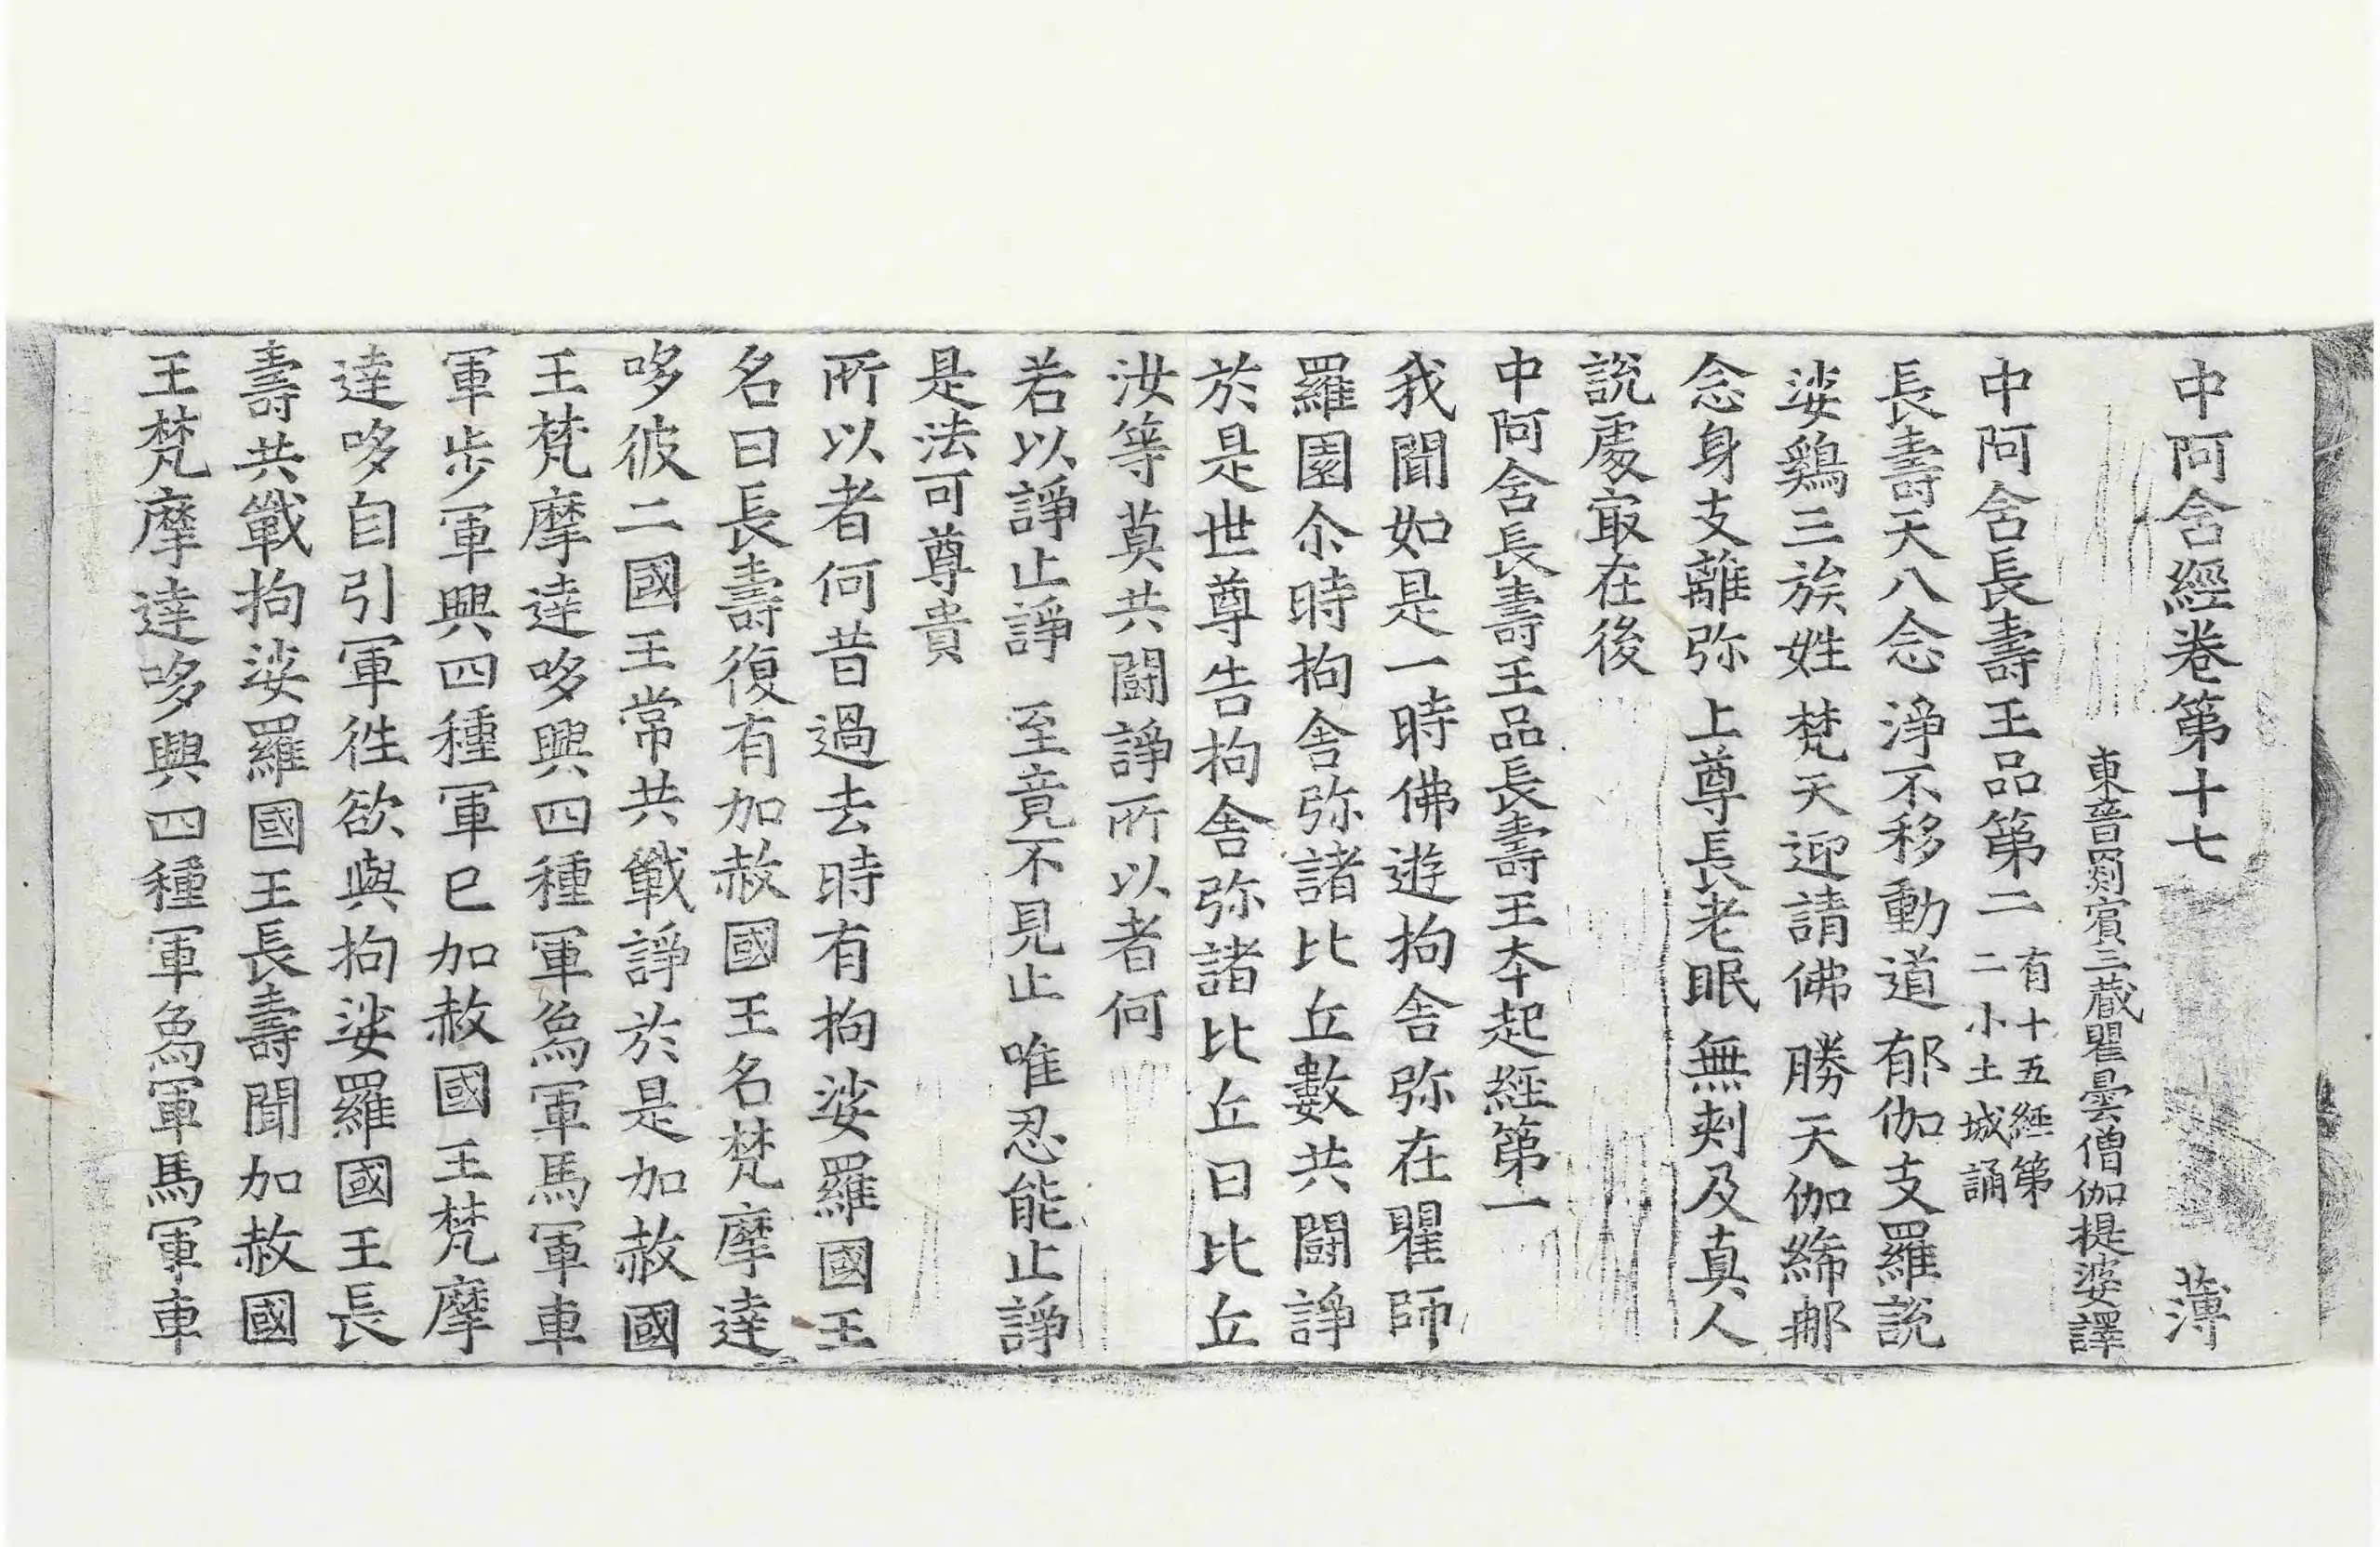 中阿含經卷第十七 薄
東晉罽賓三藏瞿曇僧伽提婆譯
中阿含長壽王品第二 有十五經第二小土城誦
長壽天八念 淨不移動道 郁伽支羅說
娑鷄三族姓 梵天迎請佛 勝天伽絺那
念身支離弥 上尊長老眠 無刾及真人
說處㝡在後
中阿含長壽王品長壽王夲起經第一
我聞如是一時佛遊拘舍弥在瞿師
羅園尒時拘舍弥諸比丘數共鬪諍
於是世尊告拘舍弥諸比丘曰比丘
汝等莫共鬪諍所以者何
若以諍止諍 至竟不見止 唯忍能止諍
是法可尊貴
所以者何昔過去時有拘娑羅國王
名曰長壽復有加赦國王名梵摩達
哆彼二國王常共戰諍於是加赦國
王梵摩達哆興四種軍象軍馬軍車
軍步軍興四種軍已加赦國王梵摩
達哆自引軍徃欲與拘娑羅國王長
壽共戰拘娑羅國王長壽聞加赦國
王梵摩達哆興四種軍象軍馬軍車